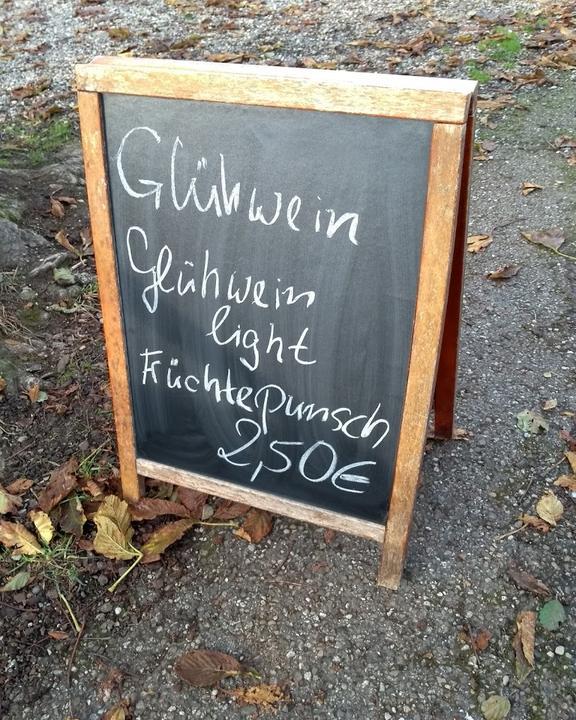 Glühwein
Glühwein
light
Früchtepunsch
2,50€